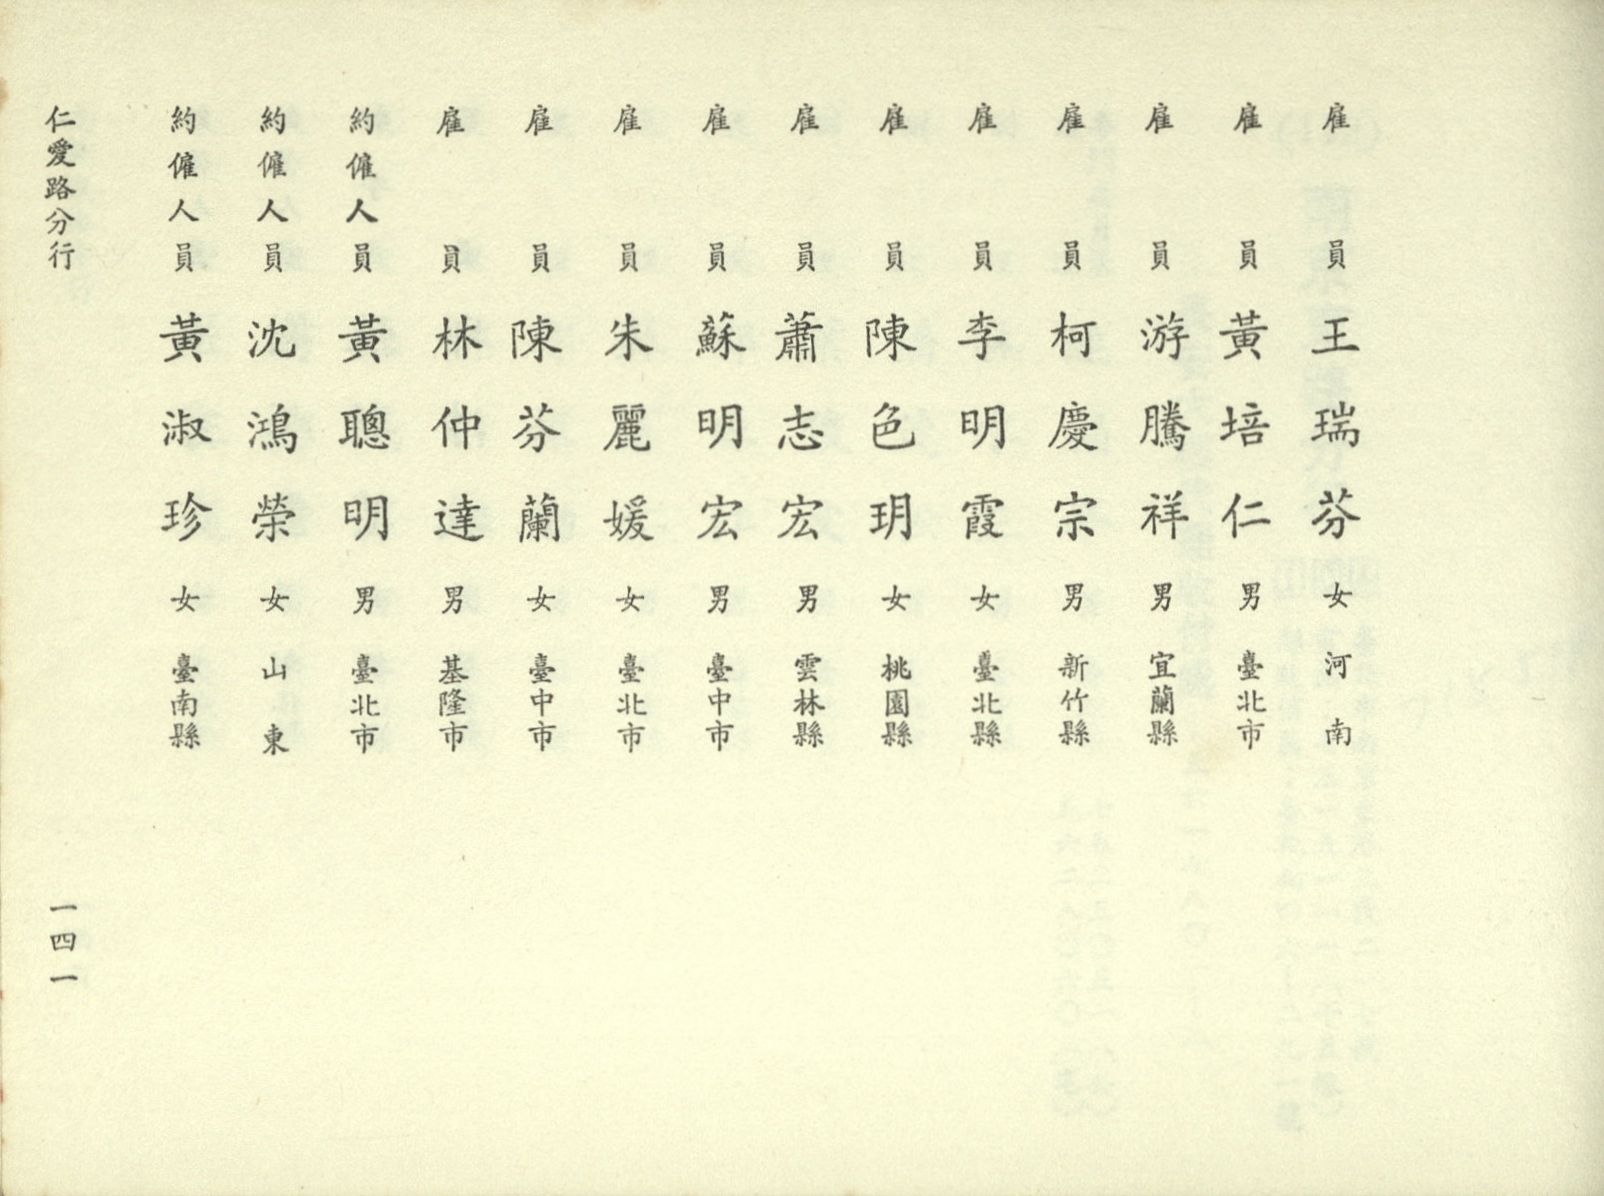 雇員王瑞芬女河南
雇員黃培仁男臺北市
雇員游騰祥男宜蘭縣
雇員柯慶宗男新竹縣
雇員李明霞女臺北縣
雇員陳色玥女桃園縣
雇員蕭志宏男雲林縣
雇員蘇明宏男臺中市
雇員朱麗媛女臺北市
雇員陳芬蘭女臺中市
雇員林仲達男基隆市
約僱人員黃聰明男臺北市
約僱人員沈鴻榮女山東
約僱人員黃淑珍女臺南縣
仁愛路分行
一四一